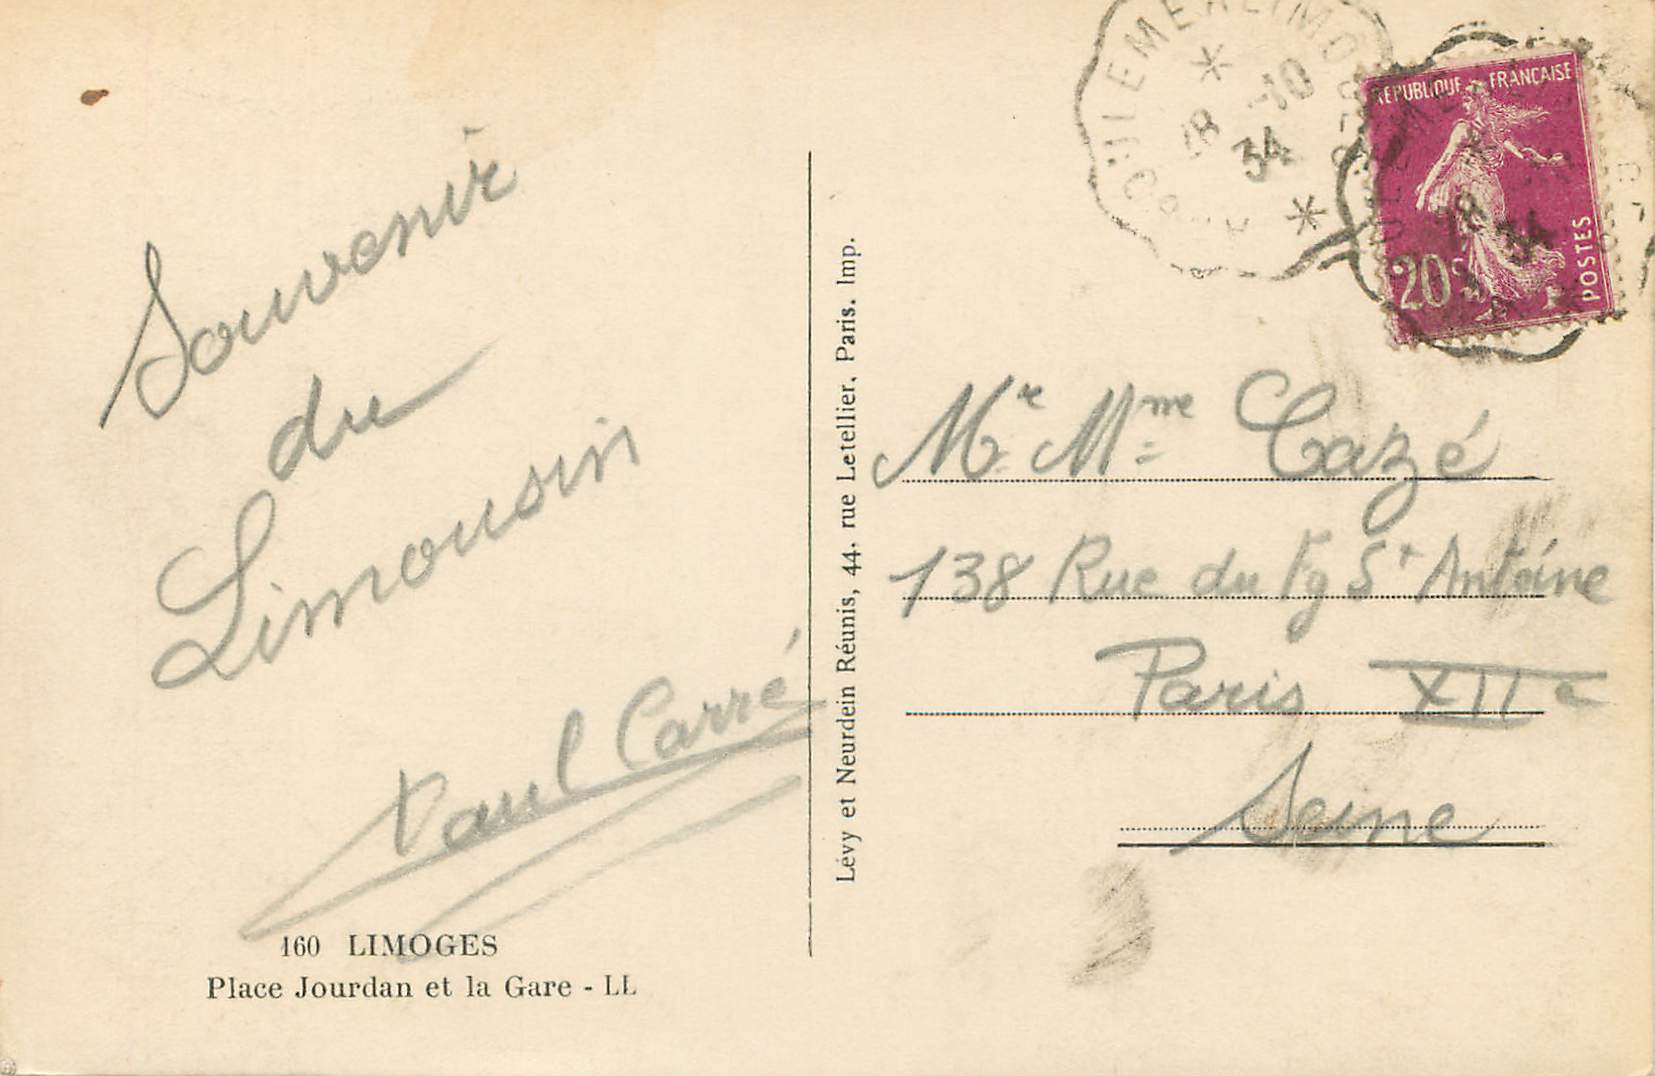 Souvenir
du
Limousin
Paul Carré
160 LIMOGES
Place Jourdan et la Gare - LL
Lévy et Neurdein Réunis, 44, rue Letellier, Paris. Imp.
18 -10
34
REPUBLIQUE FRANÇAISE
20c
POSTES
18
34
Mr Mme Cazé
138 Rue du Fg St Antoine
Paris XIIe
Seine